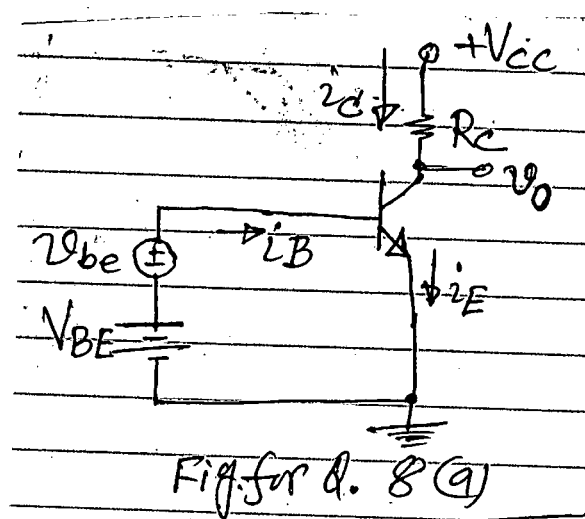 +Vcc
ic
Rc
v0
vbe
iB
iE
VBE
Fig. for Q. 8(a)